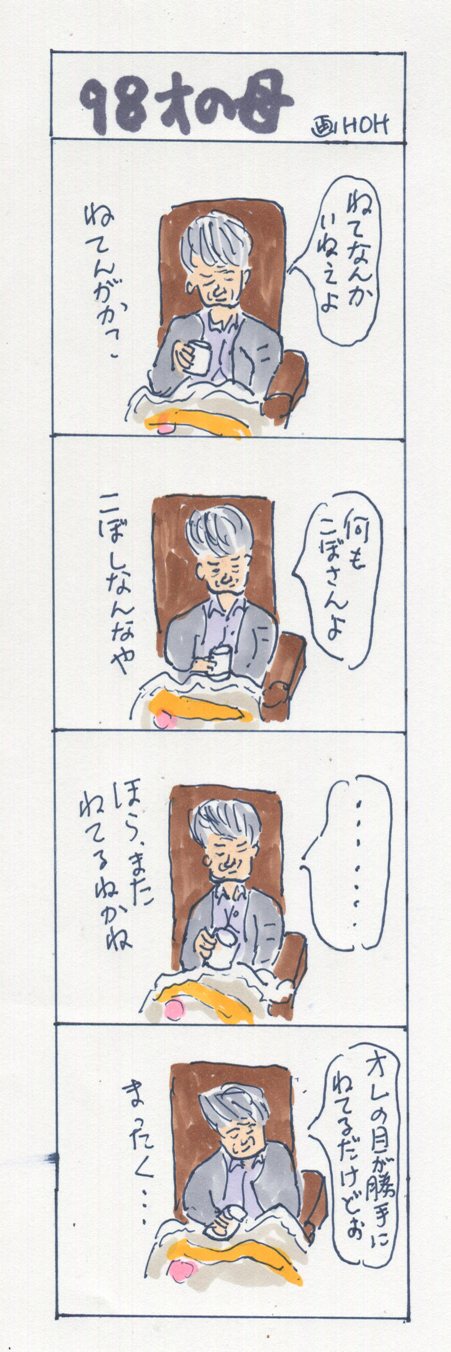 98才の母
画HOH
ねてなんか
いねえよ
ねてんがか？
何も
こぼさんよ
こぼしなんなや
・・・・・・・・
ほら、また
ねてるねかね
オレの目が勝手に
ねてるだけどお
まったく・・・